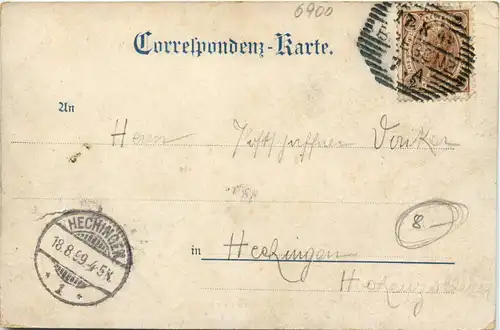 6900
Correspondenz-Karte.
An
Herrn Postschaffner
8.—
in Hechingen
Hohenzollern
HECHINGEN
18.8.99.4-5N.
* 1 *